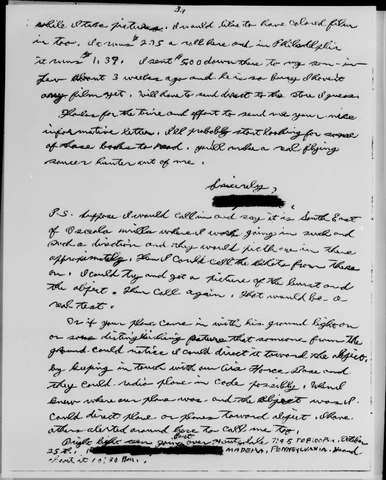 3.
while I take pictures. I would like to have colored film
in too. It runs $2.75 a roll here and in Philadelphia
it runs $1.39. I sent $5.00 down there to my son-in-
law about 3 weeks ago and he is so busy I haven't
any film yet. Will have to send direct to the store I guess.
for the time and effort to send me your nice
informative letter. I'll probably start looking for some
of those books to read. You'll make a real flying
saucer hunter out of me.
Sincerely,
P.S. Suppose I would call in and say it is South East
of Osceola Mills where I work going in such and
such a direction and they would put flare in there
approximately. Then I could call the shots from there
on. I could try and get a picture of the burst and
the object. Then call again. That would be a
real test.
Or if your plane came in with his ground light on
or some distinguishing feature that someone from the
ground could notice I could direct it toward the object,
by keeping in touch with our Air Force Base and
they could radio plane in code possibly. When I
knew where our plane was and the object was I
could direct plane or planes toward object. I have
others alerted around here to call me too.
Bright light seen going East over 7:45 to 8:00 P.M. October
25th. MADERA, PENNSYLVANIA. Heard
about it 10:30 P.M.